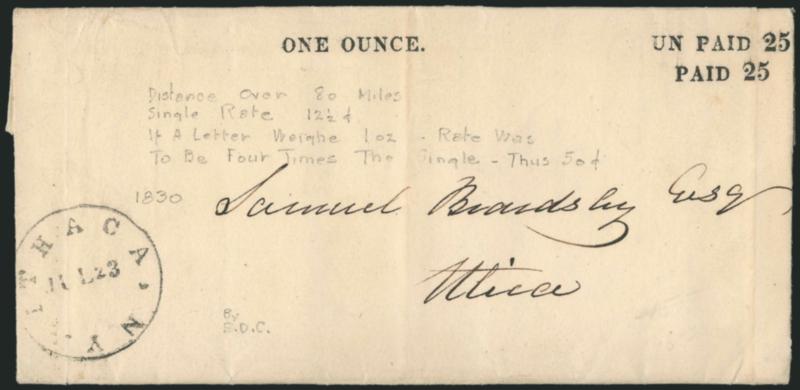 ONE OUNCE.
UN PAID 25
PAID 25
Distance Over 80 Miles
Single Rate 12½ ¢
If A Letter Weighe 1 oz - Rate Was
To Be Four Times The Single - Thus 50¢
1830
Samuel Beardsley Esqr
Utica
ITHACA. N.Y.
JUL 23
By
E.D.C.